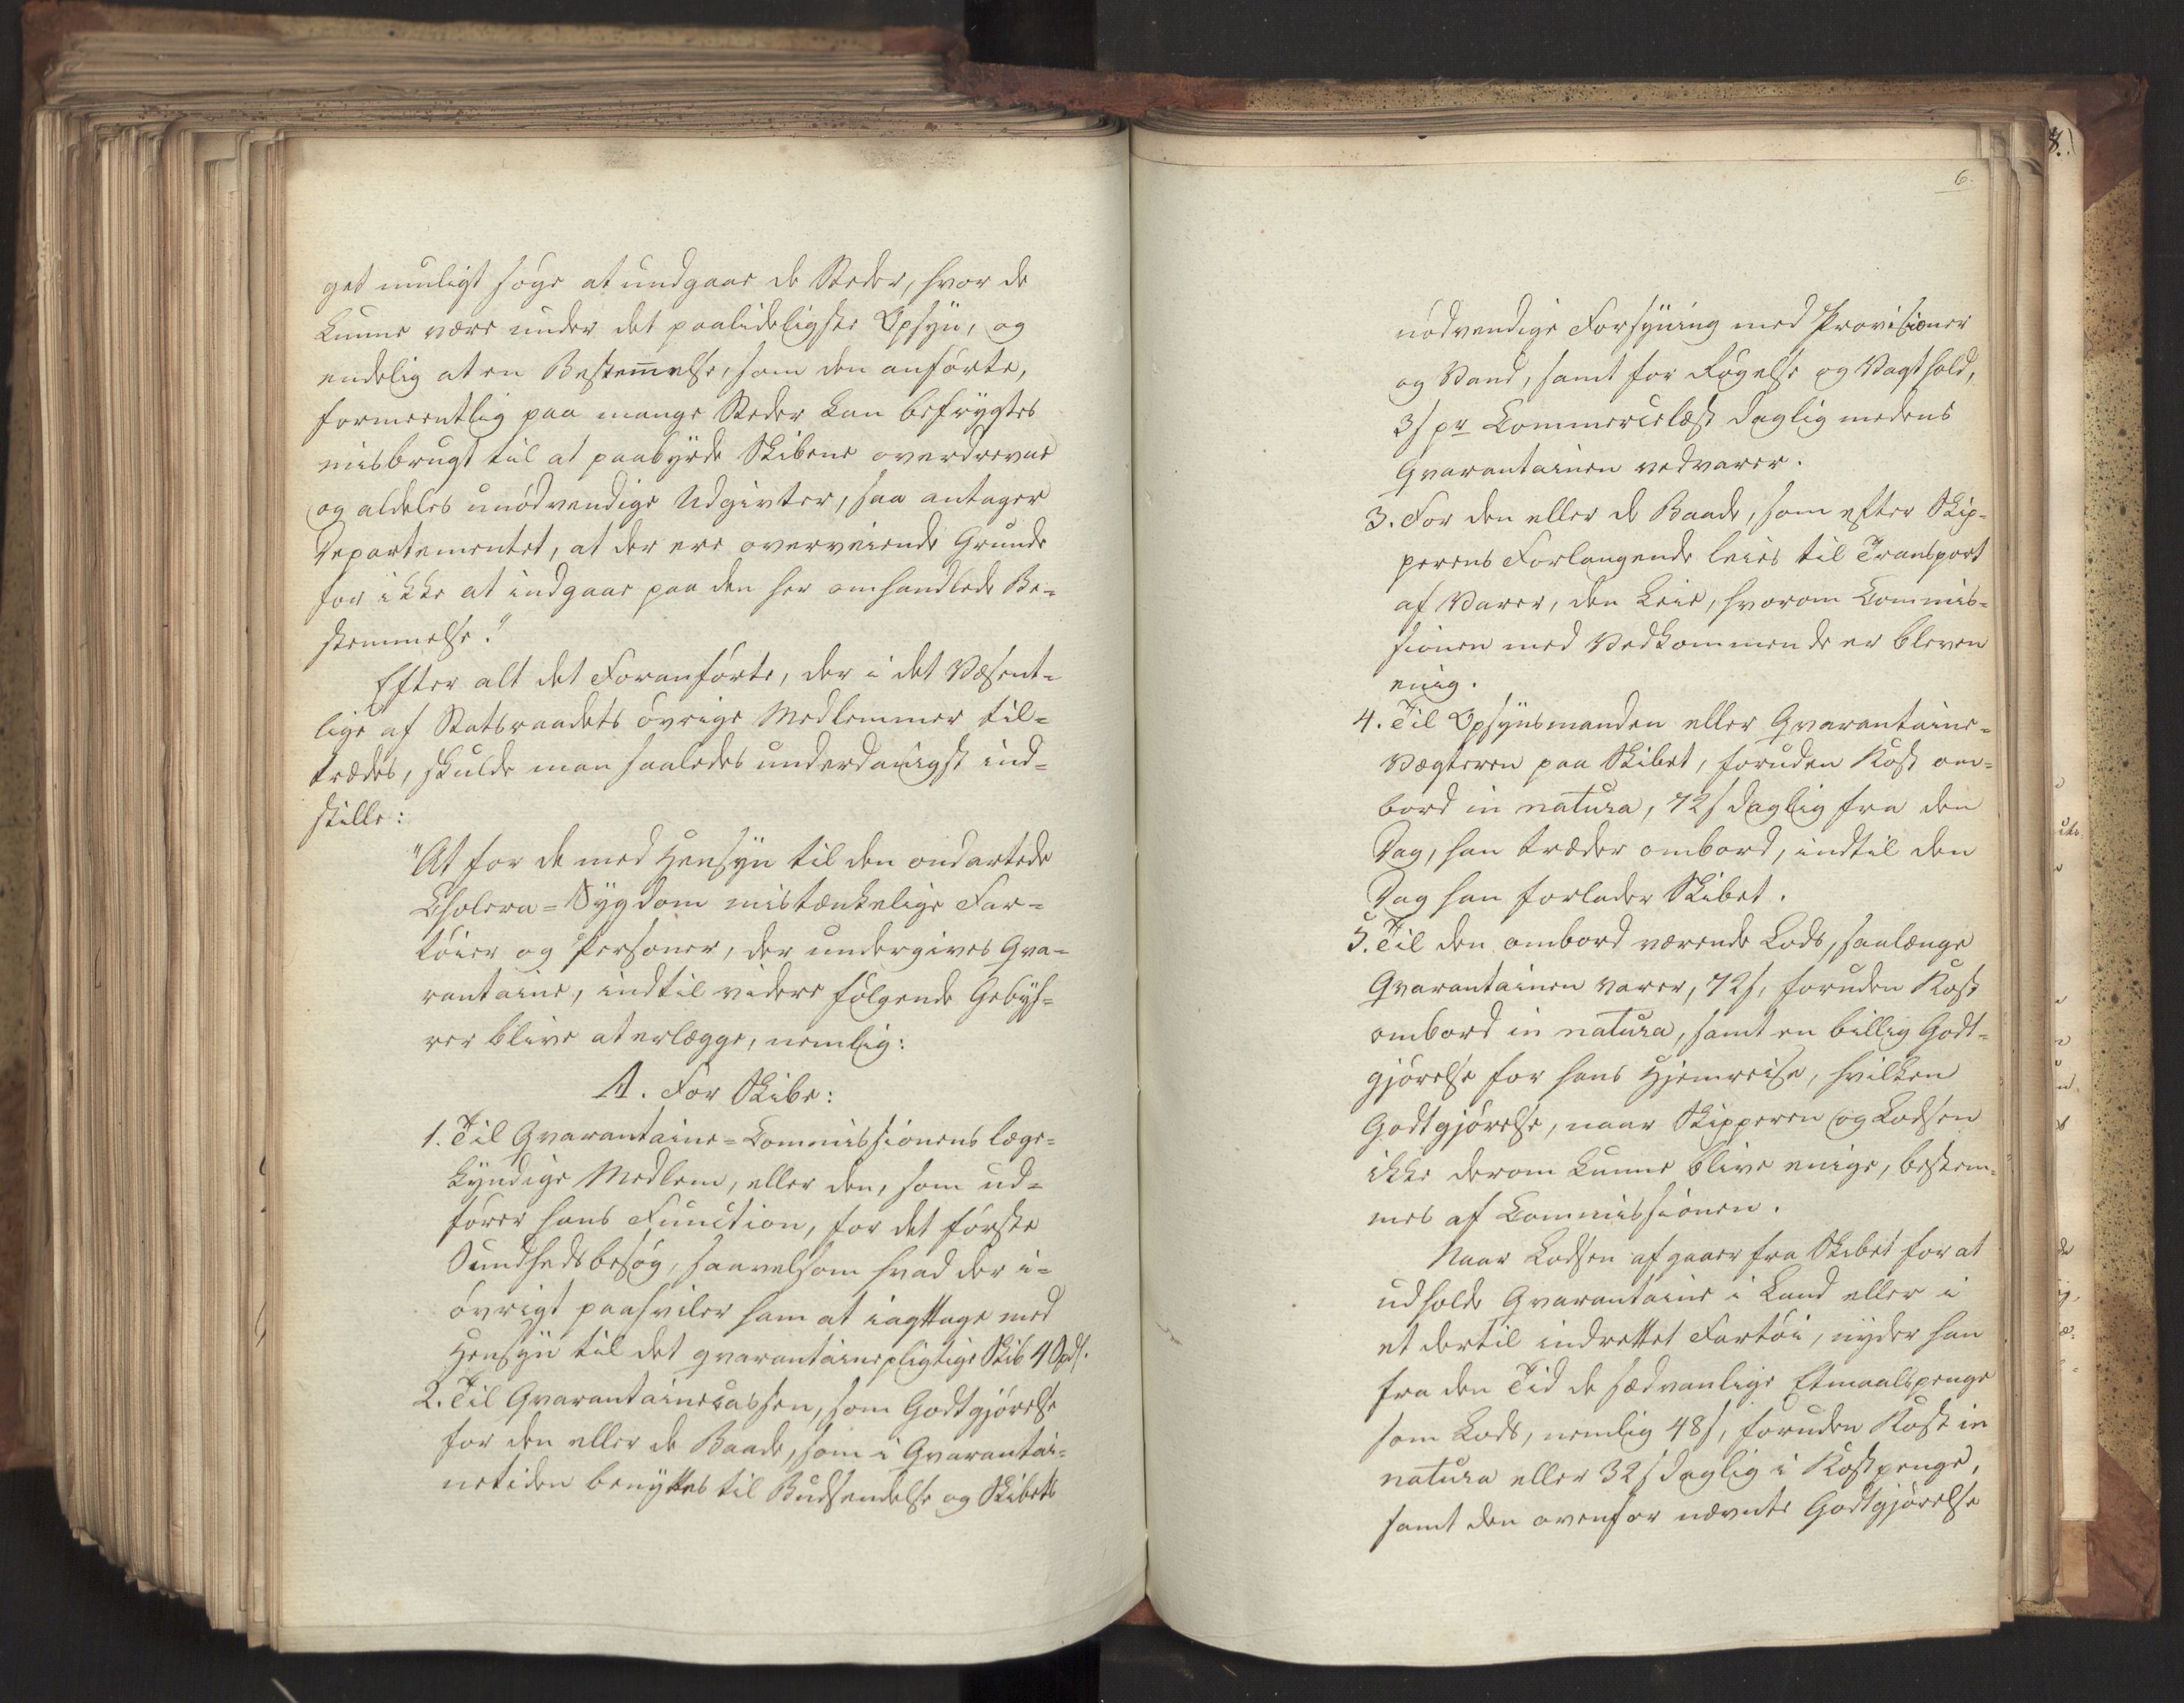 get muligt søge at undgaae de Steder, hvor de
kunne være under det paalideligste Opsyn, og
endelig at en Bestem̅else, som den anførte,
formeentlig paa mange Steder kan befrygtes
misbrugt til at paabyrde Skibene overdrevne
og aldeles unødvendige Udgivter, saa antager
Departementet, at der ere overveiende Grunde
for ikke at indgaae paa den her omhandlede Be-
stemmelse."
Efter alt det Foranførte, der i det Væsent-
lige af Statsraadets øvrige Medlemmer til-
trædes, skulde man saaledes underdanigst ind-
stille:
"At for de med Hensyn til den ondartede
Cholera-Sygdom mistænkelige Far-
tøier og Personer, der undergives Qva-
rantaine, indtil videre følgende Gebyh-
rer blive at erlægge, nemlig:
A. For Skibe:
1. Til Qvarantaine-Commissionens læge-
kyndige Medlem, eller den, som ud-
fører hans Function, for det første
Sundhedsbesøg, saavelsom hvad der i-
øvrigt paahviler ham at iagttage med
Hensyn til det qvarantainepligtige Skib 4 Spd.
2. Til Qvarantainecassen, som Godtgjørelse
for den eller de Baade, som i Qvarantai-
netiden benyttes til Budsendelse og Skibets
6.
nødvendige Forsyning med Provisioner
og Vand, samt for Røgelse og Vagthold,
3 s pr Commercelæst daglig medens
Qvarantainen vedvarer.
3. For den eller de Baade, som efter Skip-
perens Forlangende leies til Transport
af Varer, den Leie, hvorom Commis-
sionen med Vedkommende er bleven
enig.
4. Til Opsynsmanden eller Qvarantaine-
Vægteren paa Skibet, foruden Kost om-
bord in natura, 72 s daglig fra den
Dag, han træder ombord, indtil den
Dag han forlader Skibet.
5. Til den ombord værende Lods, saalænge
Qvarantainen varer, 72 s, foruden Kost
ombord in natura, samt en billig Godt-
gjørelse for hans Hjemreise, hvilken
Godtgjørelse, naar Skipperen og Lodsen
ikke derom kunne blive enige, bestem-
mes af Commissionen.
Naar Lodsen afgaaer fra Skibet for at
udholde Qvarantaine i Land eller i
et dertil indrettet Fartøi, nyder han
fra den Tid de sædvanlige Etmaalspenge
som Lods, nemlig 48 s, foruden Kost in
natura eller 32 s daglig i Kostpenge,
samt den ovenfor nævnte Godtgjørelse
8.